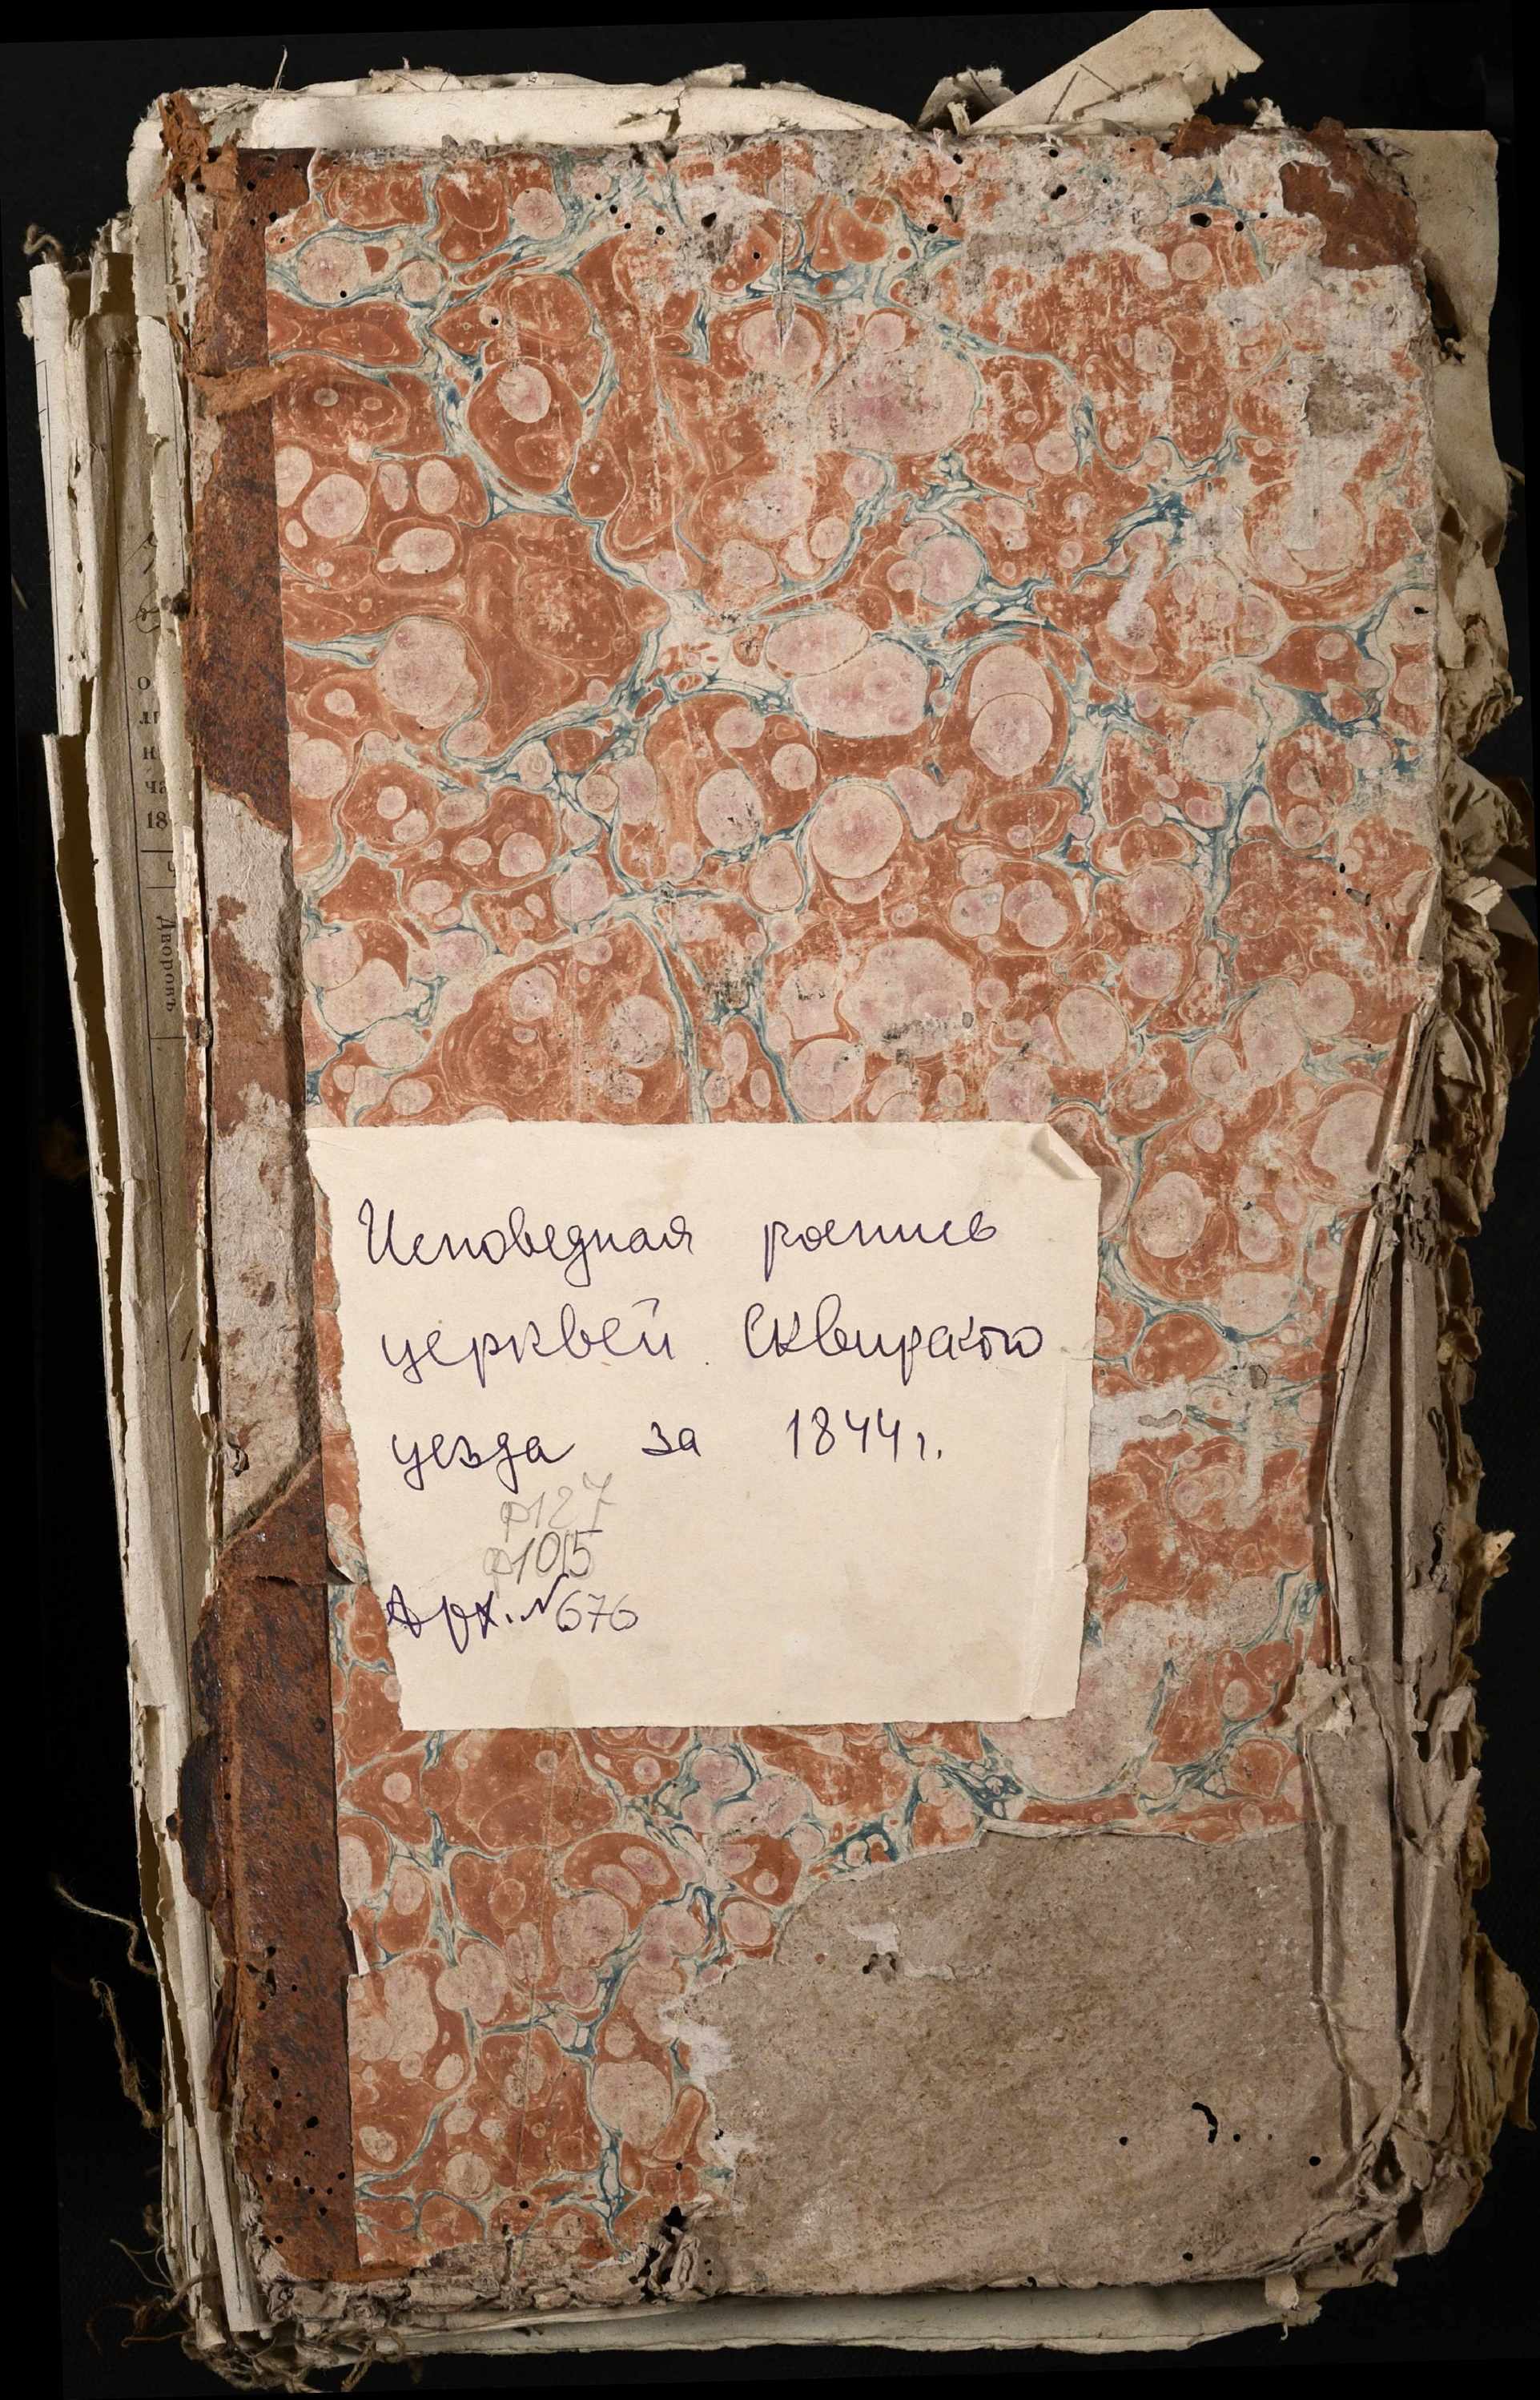 Исповедная роспись
церквей Сквирского
уезда за 1844 г.
ф127
о1015
Арх. № 676
18
Дворовъ